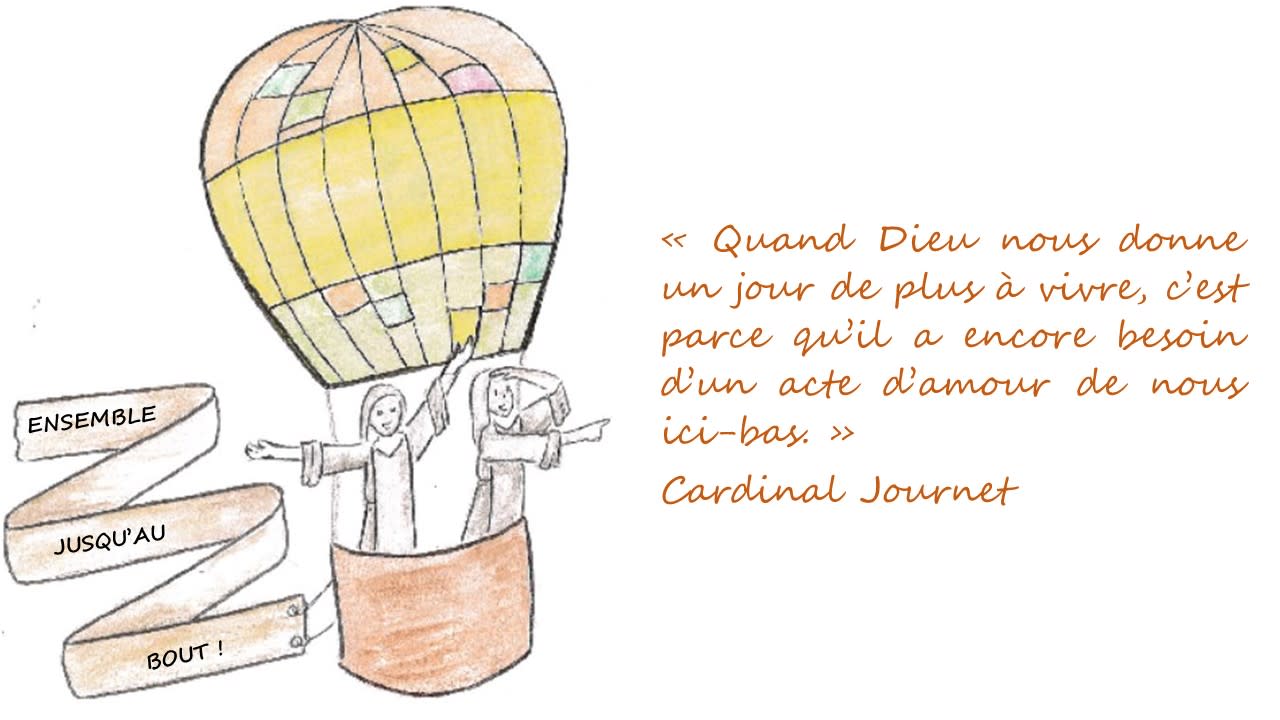 ENSEMBLE
JUSQU'AU
BOUT !
« Quand Dieu nous donne
un jour de plus à vivre, c'est
parce qu'il a encore besoin
d'un acte d'amour de nous
ici-bas. »
Cardinal Journet